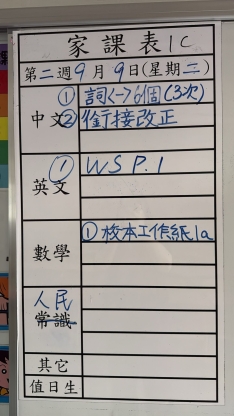 家課表1C
第二週9月9日(星期二)
中文 ①詞<一>6個(3次)
②銜接改正
英文 ① WS P.1
數學 ①校本工作紙1a
人民
常識
其它
值日生